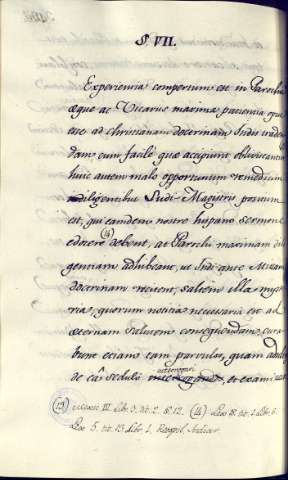 S. VII.
Experientia compertum est in Parochis
æque ac Vicariis maxima patientia opus
esse ad christianam doctrinam Indis traden
dam cum facile quæ accipiunt obliviscantur
huic autem malo opportunum remedium
indiligentibus Ludi-Magistris positum
est, qui eamdem nostro hispano sermone
edocere debent, at Parochi maximam dili
gentiam adhibeant, ut Indi ante Missam
doctrinam recitent, saltem illa myste
ria, quorum notitia necessaria est ad
æternam salutem consequendam, cura
bunt etiam tam parvulos, quam adultos
de eâ sedulò interrogari et examinari
(13) Mexic. III. Lib. 3. tit. 2. § 12. (14) Leg. 18. tit. 1. Lib. 6.
Leg. 5. tit. 13. Lib. 1. Recopil. Indiar.